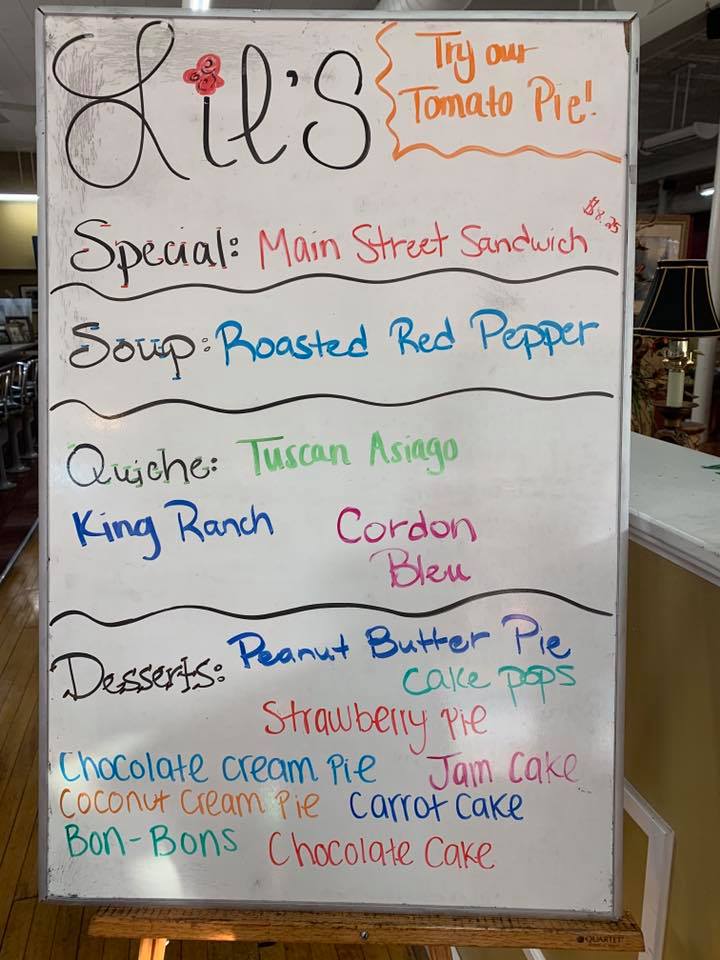 Lil's
Try our
Tomato Pie!
$8.25
Special: Main Street Sandwich
Soup: Roasted Red Pepper
Quiche: Tuscan Asiago
King Ranch Cordon
Bleu
Desserts: Peanut Butter Pie
Cake pops
Strawberry Pie
Chocolate cream Pie Jam Cake
Coconut Cream Pie Carrot Cake
Bon-Bons Chocolate Cake
QUARTET